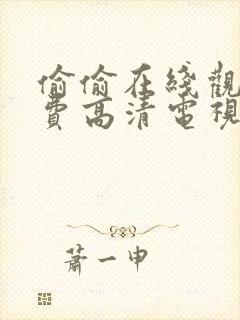 偷偷在綫觀
費高清電視
蕭一申